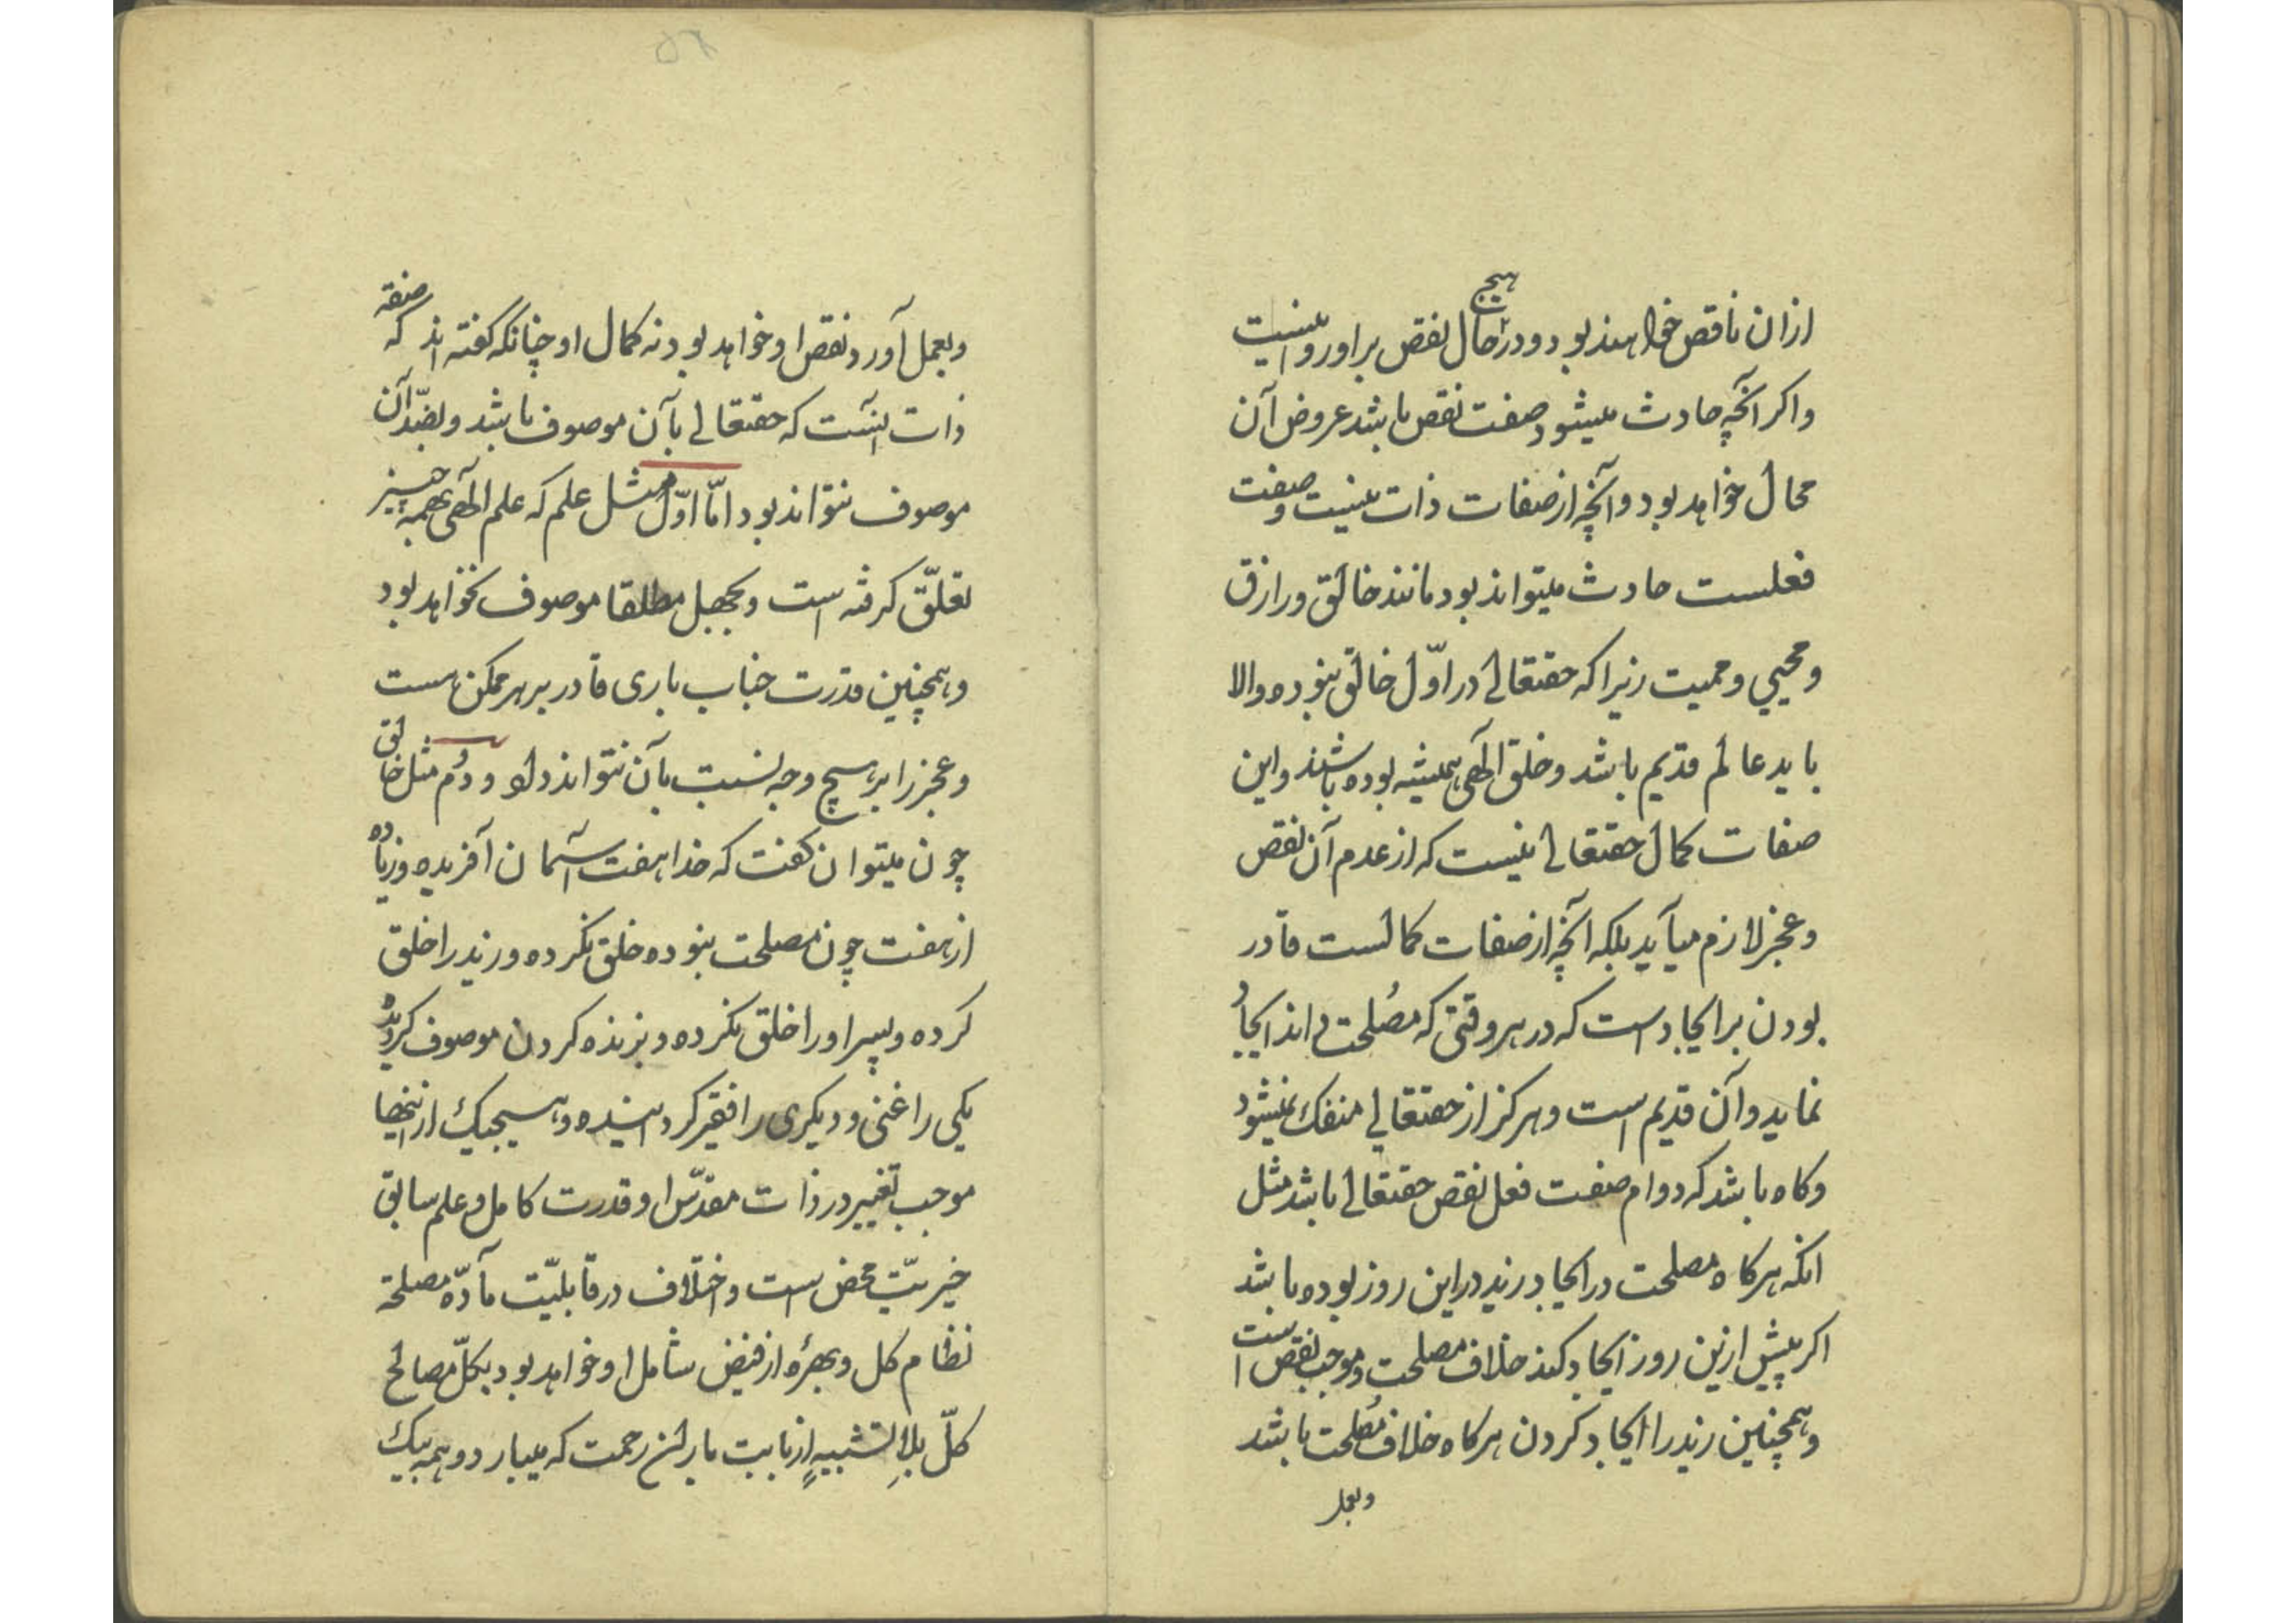 ازان ناقص خواهند بود و در هیچ حال نقص بر او روا نیست
واکر آنچه حادث میشود صفت نقص باشد عروض آن
محال خواهد بود و آنچه از صفات ذات نیست و صفت
فعلست حادث میتواند بود مانند خالق و رازق
و محیی و ممیت زیرا که حقتعالی در اوّل خالق نبوده والا
باید عالم قدیم باشد و خلق الٓهی همیشه بوده باشند واین
صفات کمال حقتعالی نیست که از عدم آن نقص
و عجز لازم میآید بلکه آنچه از صفات کمالست قادر
بودن بر ایجاد است که در هر وقتی که مصلحت داند ایجاد
نماید و آن قدیم است و هرکز از حقتعالی منفک نمیشود
و کاه باشد که دوام صفت فعل نقص حقتعالی باشد مثل
انکه هرکاه مصلحت در ایجاد زید در این روز بوده باشد
اکر پیش ازین روز ایجاد کند خلاف مصلحت و موجب نقص است
و همچنین زید را ایجاد کردن هرکاه خلاف مصلحت باشد
و بعمل
و بعمل آورد نقص او خواهد بود نه کمال او چنانکه کفته اند که صفة
ذات آنست که حقتعالی بآن موصوف باشد و بضدّ آن
موصوف نتواند بود امّا اوّل مثل علم که علم الٓهی بهمه چیز
تعلّق کرفته است و بجهل مطلقا موصوف نخواهد بود
و همچنین قدرت جناب باری قادر بر هر ممکن هست
و عجز را بر هیچ وجه نسبت بآن نتواند داد و دوُم مثل خالق
چون میتوان کفت که خدا هفت آسمان آفریده و زیاده
از هفت چون مصلحت نبوده خلق نکرده و زید را خلق
کرده و پسر او را خلق نکرده و بزنده کردن موصوف کردیده
یکی را غنی و دیکری را فقیر کردانیده و هیچیک از اینها
موجب تغییر در ذات مقدّس او قدرت کامل و علم سابق
خیریّت محض است و اختلاف در قابلیّت مآدّه مصلحة
نظام کل و بهرهٔ از فیض شامل او خواهد بود بکلّ مصالح
کلّ بلا تشبیه از بابت باران رحمت که میبارد و همه بیک